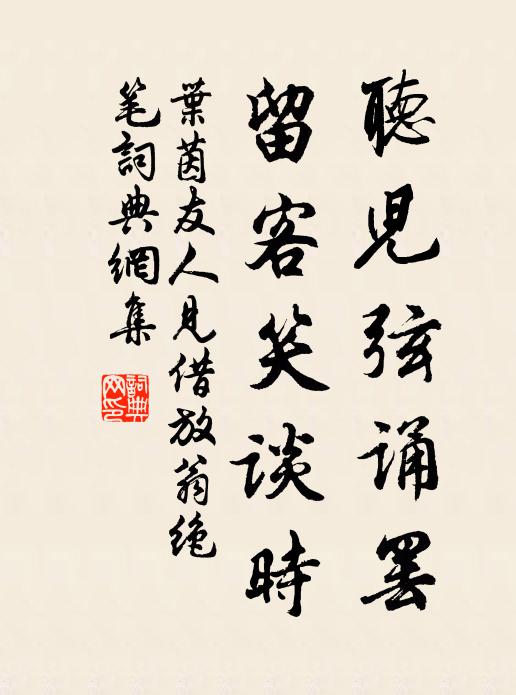 聽兒弦誦罷
留客笑談時
葉茵友人見借放翁絶
笔詞典網集
詞典
网印